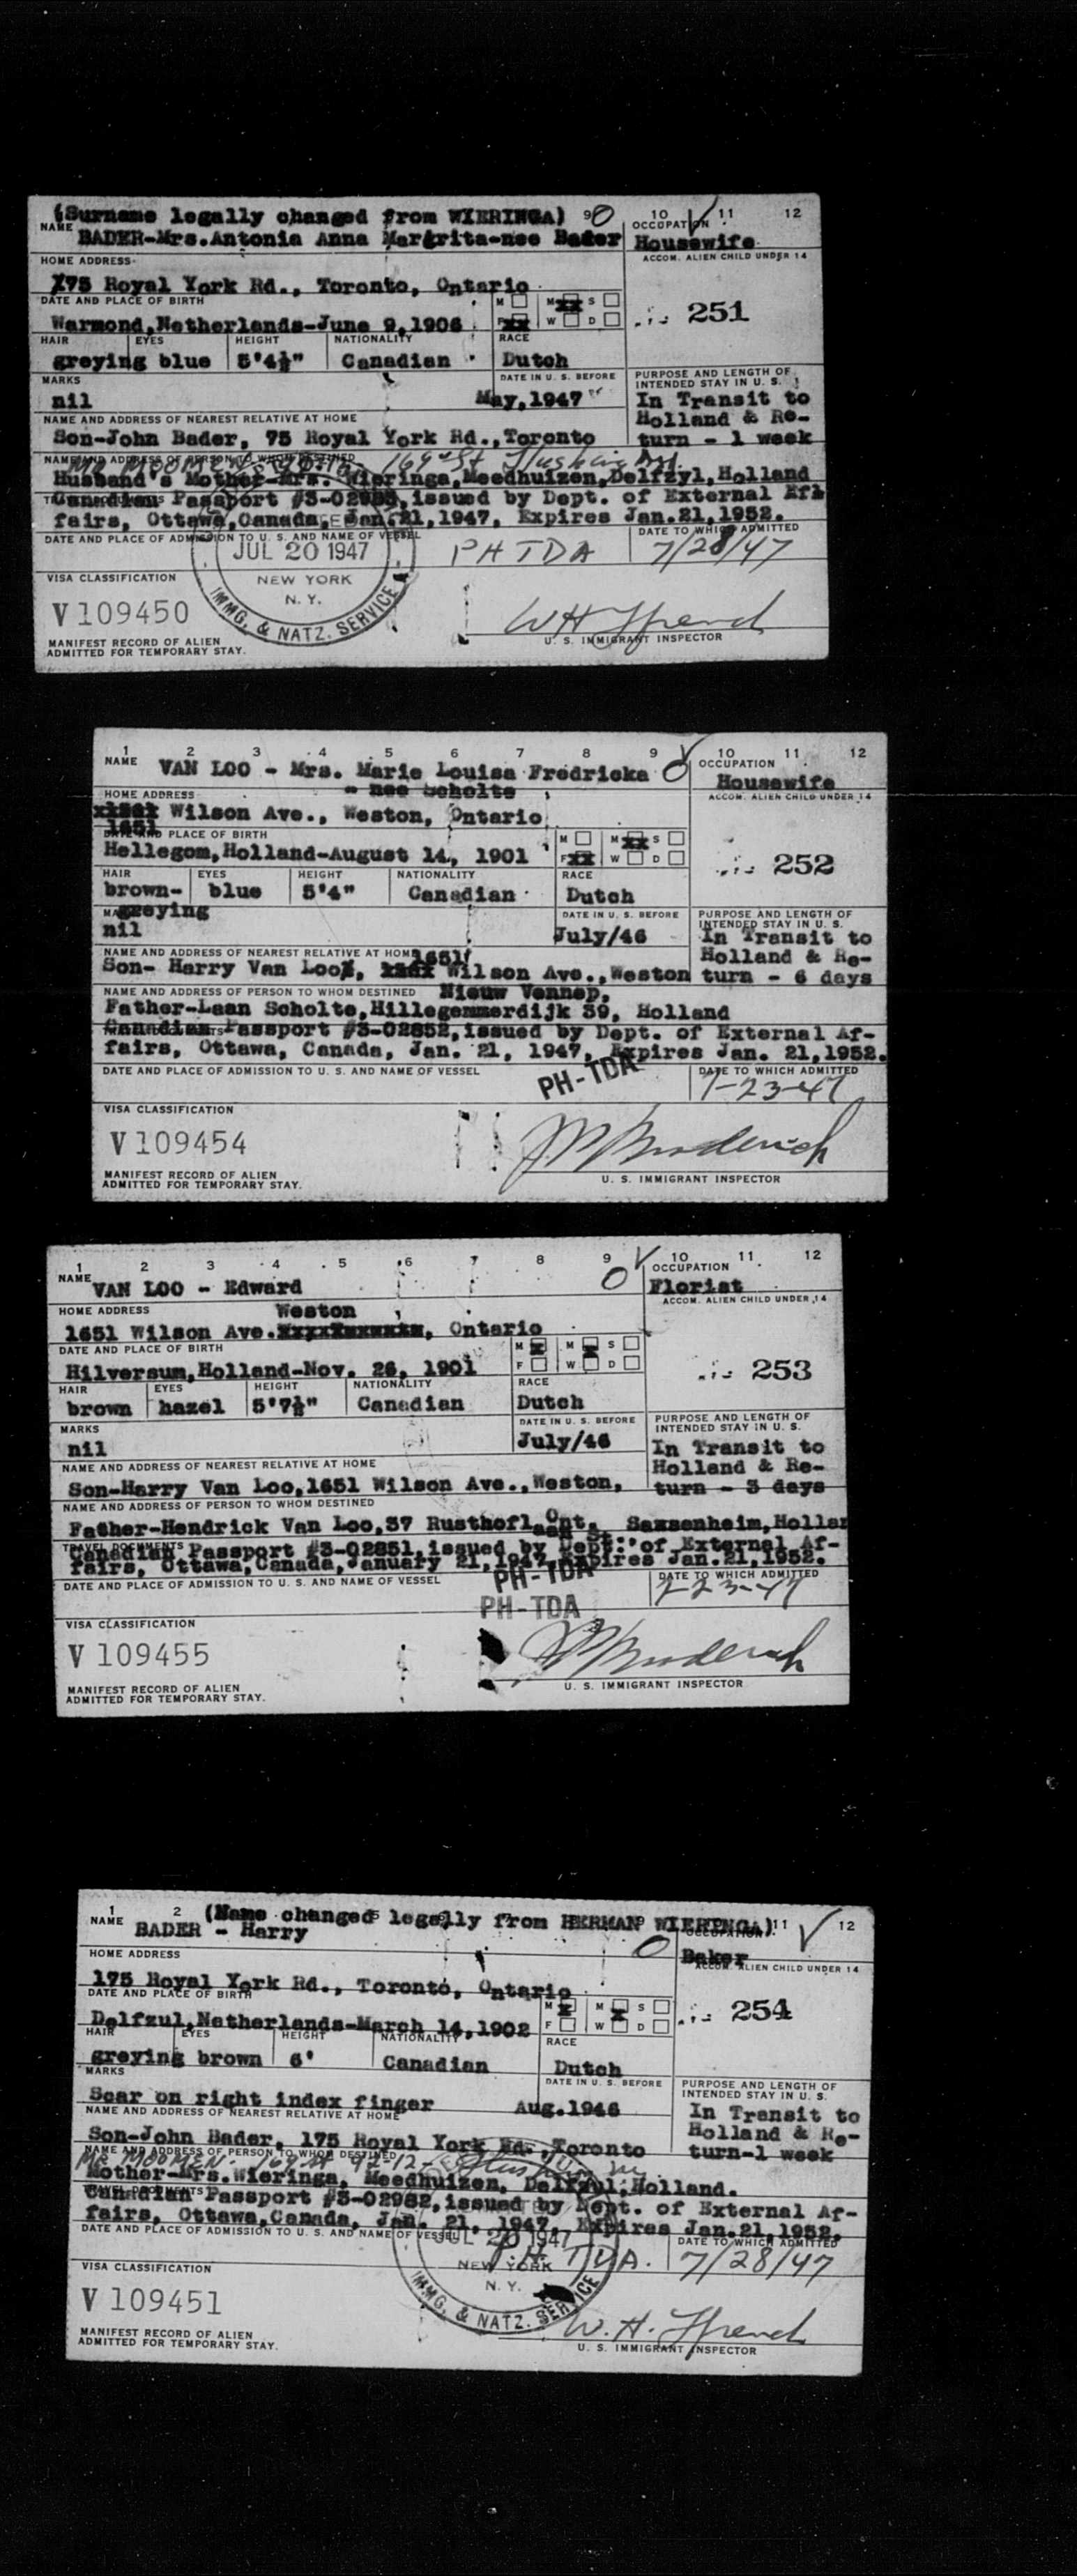 (Surname legally changed from WIERINGA) 9 10 11 12
NAME BADER-Mrs.Antonia Anna Margrita-nee Bader
OCCUPATION
Housewife
HOME ADDRESS
ACCOM. ALIEN CHILD UNDER 14
175 Royal York Rd., Toronto, Ontario
DATE AND PLACE OF BIRTH M M S
251
Warmond,Netherlands-June 9,1906 F W D
HAIR EYES HEIGHT NATIONALITY RACE
greying blue 5'4½" Canadian Dutch
MARKS DATE IN U. S. BEFORE
PURPOSE AND LENGTH OF
INTENDED STAY IN U. S.
nil May,1947
In Transit to
Holland & Re-
turn - 1 week
NAME AND ADDRESS OF NEAREST RELATIVE AT HOME
Son-John Bader, 75 Royal York Rd.,Toronto
NAME AND ADDRESS OF PERSON TO WHOM DESTINED
169 St Flushing
Husband's Mother-Mrs. Wieringa,Meedhuizen,Delfzyl,Holland
Canadian Passport issued by Dept. of External Af-
fairs, Ottawa,Canada, Jan.21,1947, Expires Jan.21,1952.
DATE AND PLACE OF ADMISSION TO U. S. AND NAME OF VESSEL
DATE TO WHICH ADMITTED
JUL 20 1947 PH TDA 7/28/47
VISA CLASSIFICATION
NEW YORK
N. Y.
IMMG. & NATZ. SERVICE
V 109450
U. S. IMMIGRANT INSPECTOR
MANIFEST RECORD OF ALIEN
ADMITTED FOR TEMPORARY STAY.
1 2 3 4 5 6 7 8 9 10 11 12
NAME VAN LOO - Mrs. Marie Louisa Fredricka
OCCUPATION
Housewife
- nee Scholte
HOME ADDRESS
ACCOM. ALIEN CHILD UNDER 14
Wilson Ave., Weston, Ontario
1651
DATE AND PLACE OF BIRTH M M S
252
Hellegom,Holland-August 14, 1901 F W D
HAIR EYES HEIGHT NATIONALITY RACE
brown- blue 5'4" Canadian Dutch
greying
MARKS DATE IN U. S. BEFORE
PURPOSE AND LENGTH OF
INTENDED STAY IN U. S.
nil July/46
In Transit to
Holland & Re-
turn - 6 days
NAME AND ADDRESS OF NEAREST RELATIVE AT HOME 1651
Son- Harry Van Loo, Wilson Ave.,Weston
NAME AND ADDRESS OF PERSON TO WHOM DESTINED Nieuw Vennep,
Father-Laan Scholte,Hillegemmerdijk 39, Holland
Canadian Passport #3-02852,issued by Dept. of External Af-
fairs, Ottawa, Canada, Jan. 21, 1947, Expires Jan. 21,1952.
DATE AND PLACE OF ADMISSION TO U. S. AND NAME OF VESSEL
PH-TDA
DATE TO WHICH ADMITTED
7-23-47
VISA CLASSIFICATION
V 109454
J M Broderick
U. S. IMMIGRANT INSPECTOR
MANIFEST RECORD OF ALIEN
ADMITTED FOR TEMPORARY STAY.
1 2 3 4 5 6 7 8 9 10 11 12
NAME VAN LOO - Edward
OCCUPATION
Florist
HOME ADDRESS Weston
ACCOM. ALIEN CHILD UNDER 14
1651 Wilson Ave. , Ontario
DATE AND PLACE OF BIRTH M M S
253
Hilversum,Holland-Nov. 26, 1901 F W D
HAIR EYES HEIGHT NATIONALITY RACE
brown hazel 5'7½" Canadian Dutch
MARKS DATE IN U. S. BEFORE
PURPOSE AND LENGTH OF
INTENDED STAY IN U. S.
nil July/46
In Transit to
Holland & Re-
turn - 3 days
NAME AND ADDRESS OF NEAREST RELATIVE AT HOME
Son-Harry Van Loo,1651 Wilson Ave.,Weston,
NAME AND ADDRESS OF PERSON TO WHOM DESTINED
Ont.
Father-Hendrick Van Loo,37 Sassenheim,Hollan
TRAVEL DOCUMENTS
Canadian Passport #3-02851,issued by Dept. of External Af-
fairs, Ottawa,Canada,January 21,1947,Expires Jan.21,1952.
DATE AND PLACE OF ADMISSION TO U. S. AND NAME OF VESSEL
PH-TDA
DATE TO WHICH ADMITTED
PH-TDA
VISA CLASSIFICATION
V 109455
J M Broderick
U. S. IMMIGRANT INSPECTOR
MANIFEST RECORD OF ALIEN
ADMITTED FOR TEMPORARY STAY.
1 2 (Name changed legally from HERMAN WIERINGA) 11 12
NAME BADER - Harry
OCCUPATION
Baker
HOME ADDRESS
ACCOM. ALIEN CHILD UNDER 14
175 Royal York Rd., Toronto, Ontario
DATE AND PLACE OF BIRTH M M S
254
Delfzul,Netherlands-March 14,1902 F W D
HAIR EYES HEIGHT NATIONALITY RACE
greying brown 6' Canadian Dutch
MARKS DATE IN U. S. BEFORE
PURPOSE AND LENGTH OF
INTENDED STAY IN U. S.
Scar on right index finger Aug.1946
In Transit to
Holland & Re-
turn-1 week
NAME AND ADDRESS OF NEAREST RELATIVE AT HOME
Son-John Bader, 175 Royal York Rd.,Toronto
NAME AND ADDRESS OF PERSON TO WHOM DESTINED
Mother-Mrs.Wieringa, Meedhuizen, Delfzul,Holland.
Canadian Passport #3-02982,issued by Dept. of External Af-
fairs, Ottawa,Canada, Jan. 21, 1947, Expires Jan.21,1952.
DATE AND PLACE OF ADMISSION TO U. S. AND NAME OF VESSEL
DATE TO WHICH ADMITTED
JUL 20 1947 P.H. TDA. 7/28/47
VISA CLASSIFICATION
NEW YORK
N. Y.
IMMG. & NATZ. SERVICE
V 109451
U. S. IMMIGRANT INSPECTOR
MANIFEST RECORD OF ALIEN
ADMITTED FOR TEMPORARY STAY.